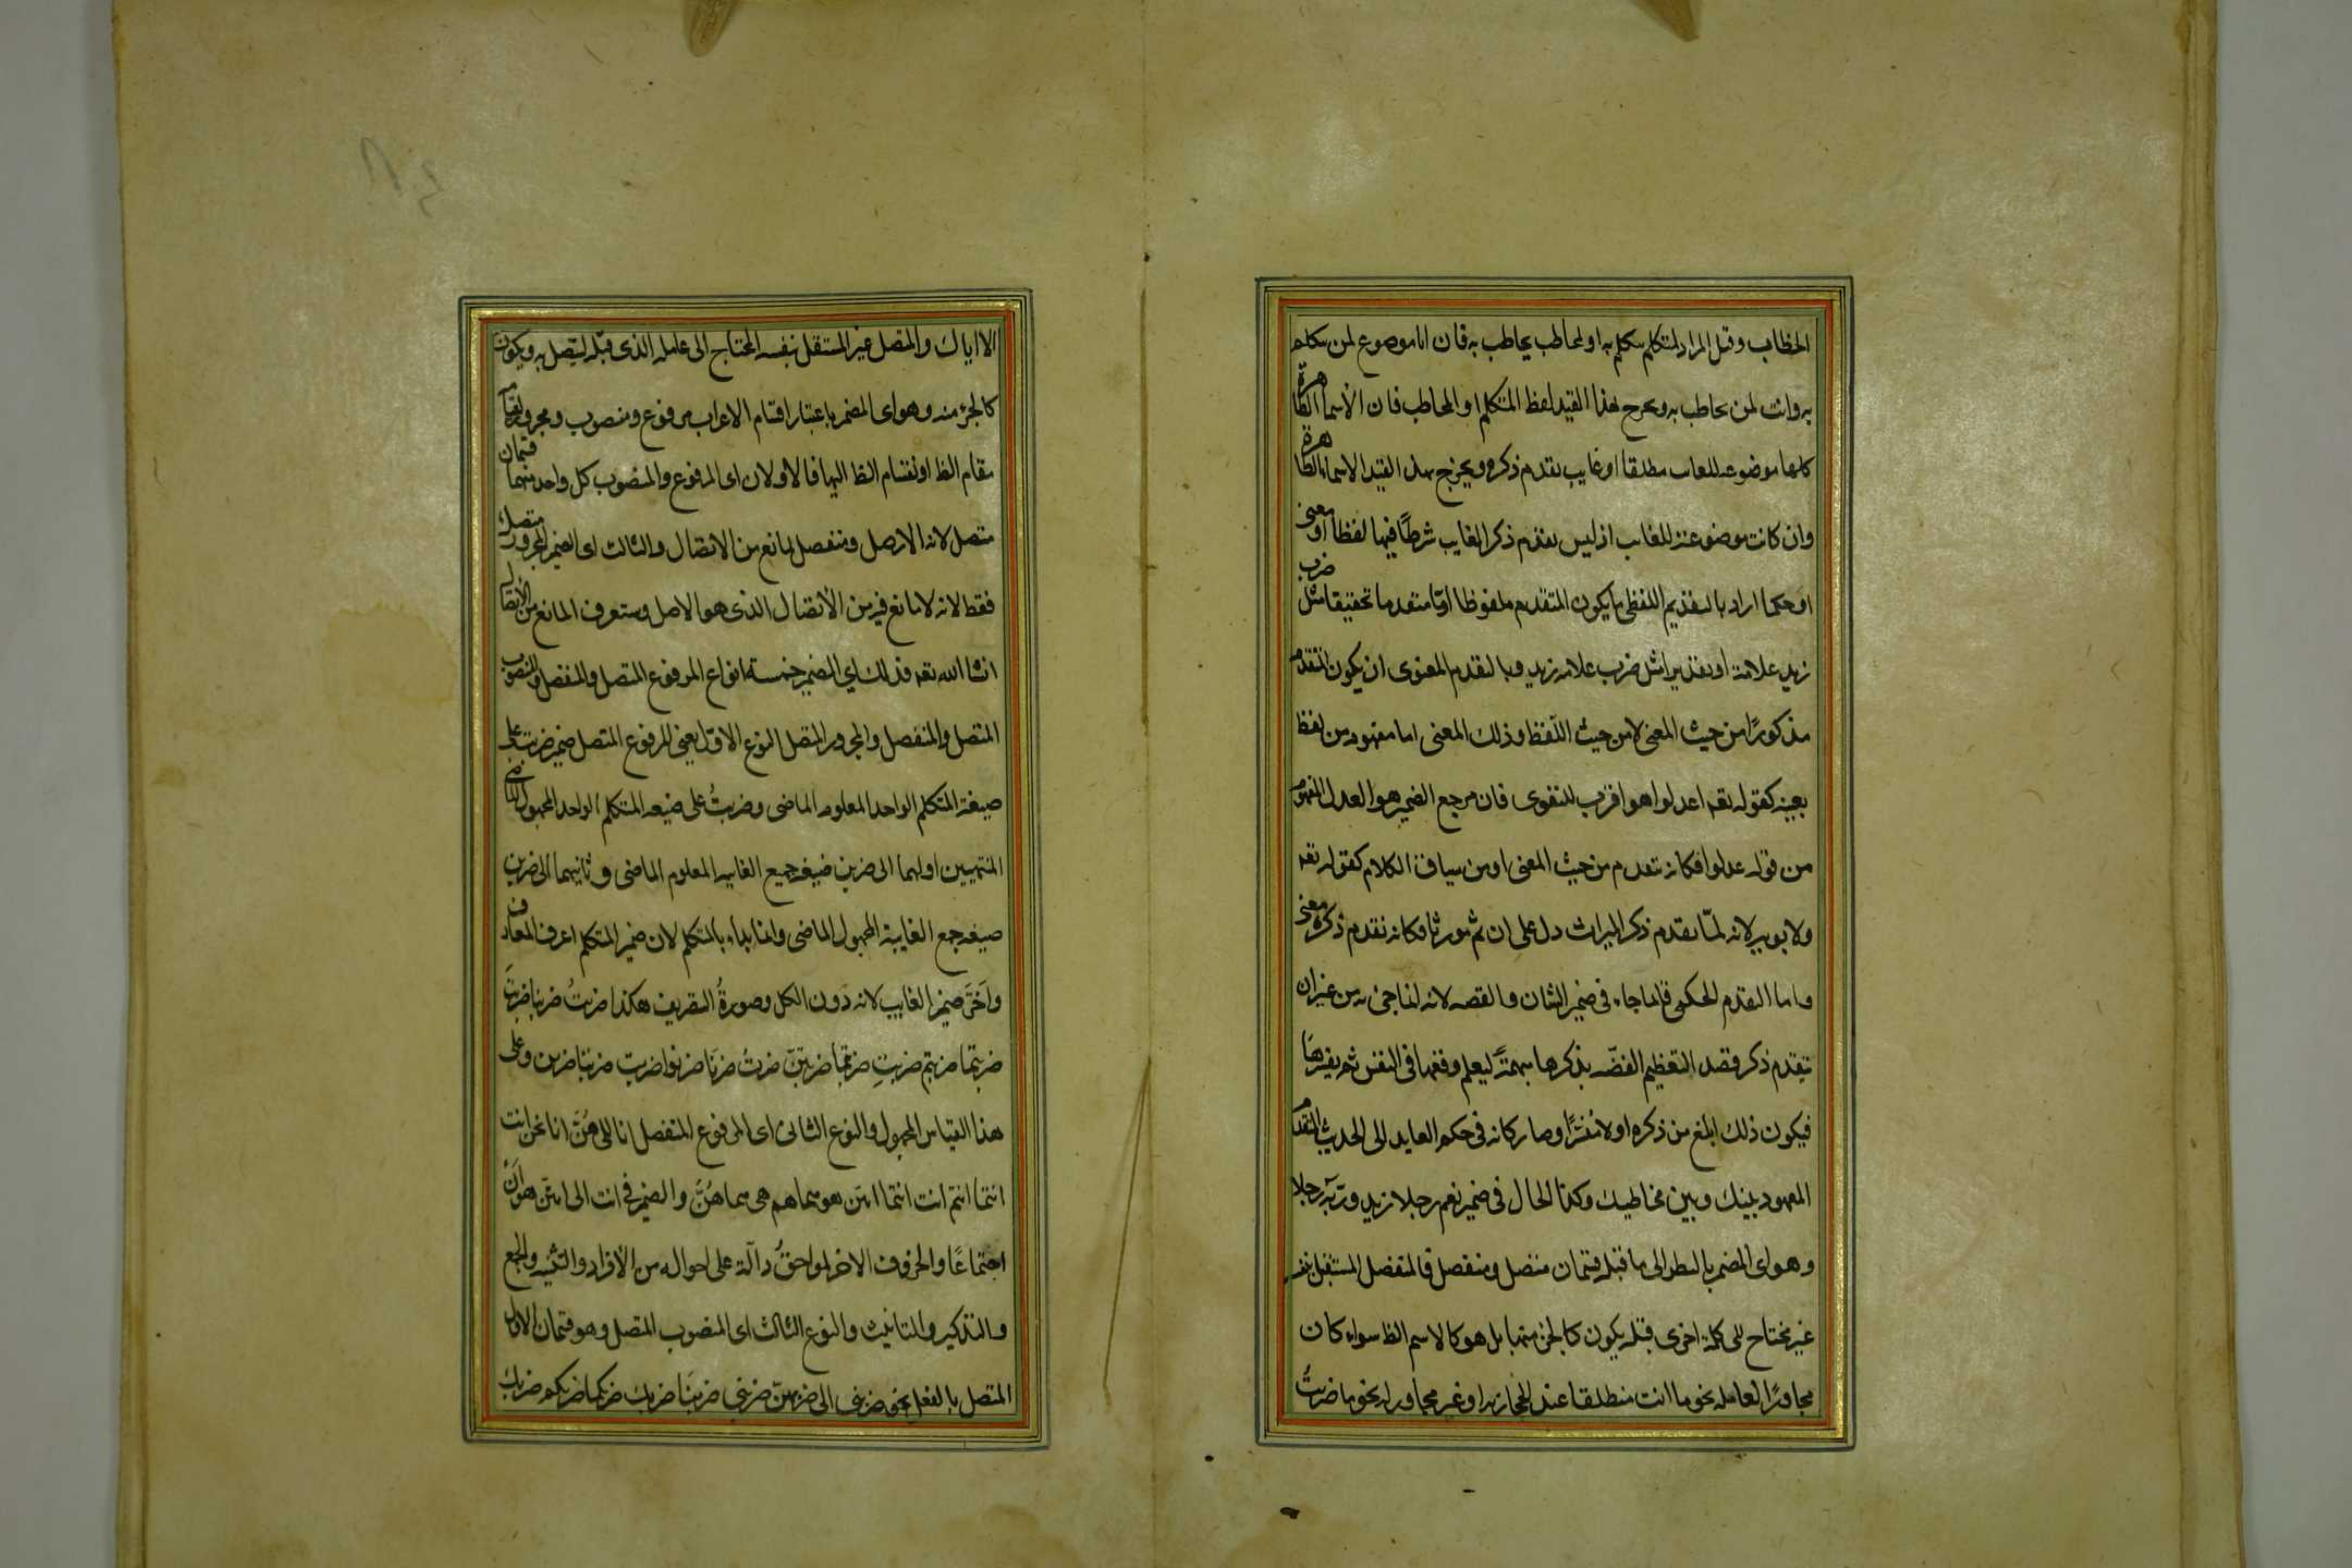 الخطاب وقيل المراد لمتكلم يتكلم به او لمخاطب يخاطب به فان انا موضوع لمن يتكلم
به وانت لمن يخاطب به ويخرج بهذا القيد لفظ المتكلم او المخاطب فان الاسماء الظاهرة
كلها موضوعه للغايب مطلقا او غايب تقدم ذكره ويخرج بهذا القيد الاسماء الظاهرة
وان كانت موضوعة للغايب اذ ليس تقدم ذكر الغايب شرطًا فيها لفظا او معنى
او حكما اراد بالتقديم اللفظى ما يكون المتقدم ملفوظا اوّا متقدما تحقيقا مثل ضرب
زيد غلامه او تقديرا مثل ضرب غلامه زيد وبالتقدم المعنوى ان يكون المتقدم
مذكورًا من حيث المعنى لا من حيث اللّفظ وذلك المعنى اما مفهوم من لفظ
بعينه كقوله تعه اعدلوا هو اقرب للتقوى فان مرجع الضمير هو العدل المفهوم
من قوله عدلوا فكانه تقدم من حيث المعنى او من سياق الكلام كقوله تعه
ولابويه لانه لمّا تقدم ذكر الميراث دل على ان ثم مورثا فكانه تقدم ذكره معنى
واما التقدم الحكمى فانما جاء فى ضمير الشان والقصه لانه انما جئ به من غير ان
يتقدم ذكر قصد التعظيم القصّه بذكرها مبهمةً ليعلم وقعها فى النفس ثم يفسرها
فيكون ذلك ابلغ من ذكره اولا مفسّرًا وصار كانه فى حكم العايد الى الحديث المتقدم
المعهود بينك وبين مخاطبك وكذا الحال فى ضمير نعم رجلا زيد وربّه رجلا
وهو اى المضمر بالنظر الى ما قبله قسمان متصل ومنفصل فالمنفصل المستقل بنفسه
غير محتاج الى كلمة اخرى قبله يكون كالجزء منها بل هو كالاسم الظا سواء كان
مجاورًا لعامله نحو ما انت منطلقا عند الحجازيه او غير مجاور له نحو ما ضربتُ
الا اياك والمتصل غير المستقل بنفسه المحتاج الى عامله الذى قبله ليتصل به ويكون
كالجزء منه وهو اى المضمر باعتبار اقسام الاعراب مرفوع ومنصوب ومجرور لقيامه
مقام الظا او لقسام الظا اليها فالاولان اى المرفوع والمنصوب كل واحد منهما قسمان
متصل لانه الاصل ومنفصل لمانع من الاتصال والثالث اى الضمير المجرور متصل
فقط لانه لا مانع فيه من الاتصال الذى هو الاصل وستعرف المانع من الاتصال
انشا الله تعه فذلك اي المضمر خمسة انواع المرفوع المتصل والمنفصل والمنصوب
المتصل والمنفصل والمجرور المتصل النوع الاوّل يعنى المرفوع المتصل ضمير ضربت على
صيغة المتكلم الواحد المعلوم الماضى وضربتُ على صيغه المتكلم الواحد المجهول الماضى
المنتهيين اولهما الى ضربن صيغه جميع الغايبه المعلوم الماضى وثانيهما الى ضربن
صيغه جمع الغايبة المجهول الماضى وانما بداء بالمتكلم لان ضمير المتكلم اعرف المعارف
واَخّرَ ضمير الغايب لانه دون الكل وصورةُ التصريف هكذا ضربتُ ضربنا ضربتَ
ضربتما ضربتم ضربتِ ضربتما ضربتنّ ضربَ ضربَا ضربوا ضربت ضربتا ضربن وعلى
هذا القياس المجهول والنوع الثانى اى المرفوع المنفصل انا الى هُنَّ انا نحن انت
انتما انتم انت انتما انتن هو هما هم هى هما هُنَّ والضمير فى انت الى انتن هو اَنْ
اجتماعًا والحروف الاخر لواحقُ دآلّة على احواله من الافراد والتثنيه والجمع
والتذكير والتانيث والنوع الثالث اى المنصوب المتصل وهو قسمان الاول
المتصل بالفعل نحو ضربنى الى ضربهنّ ضربنى ضربنَا ضربك ضربكما ضربكم ضربكِ